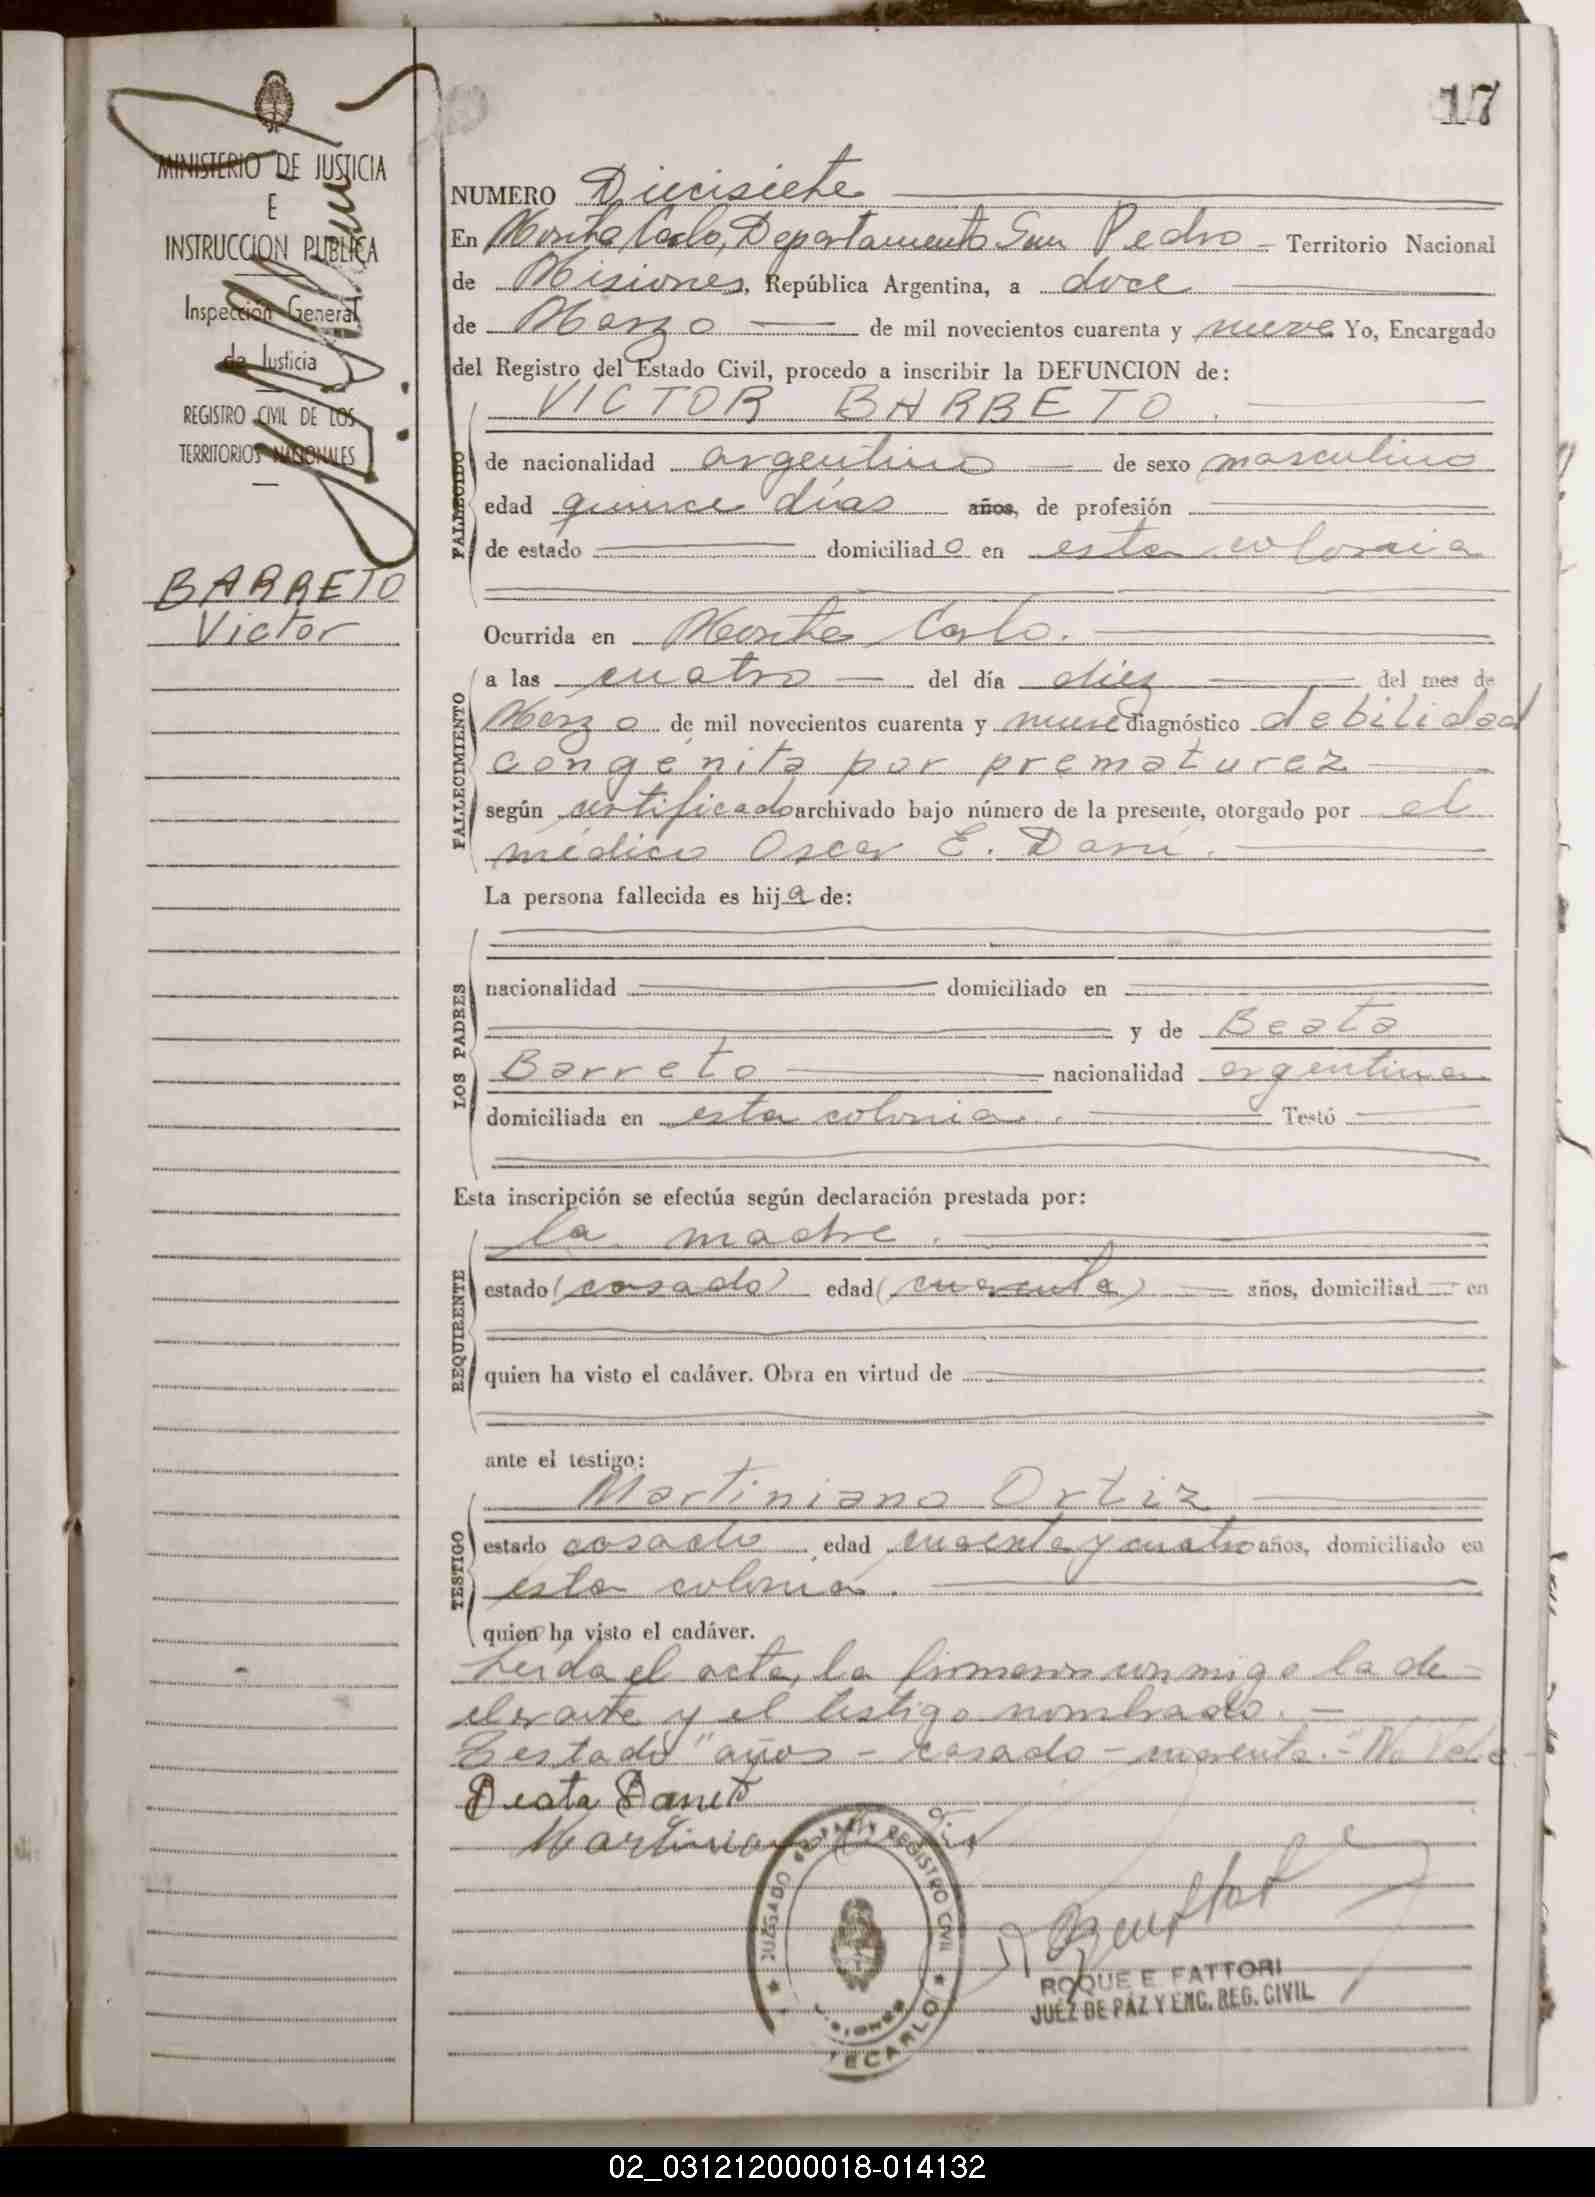 17
MINISTERIO DE JUSTICIA
E
INSTRUCCION PUBLICA
Inspección General
de Justicia
REGISTRO CIVIL DE LOS
TERRITORIOS NACIONALES
BARRETO
Victor
NUMERO Diecisiete
En Monte Carlo, Departamento San Pedro - Territorio Nacional
de Misiones, República Argentina, a doce
de Marzo de mil novecientos cuarenta y nueve Yo, Encargado
del Registro del Estado Civil, procedo a inscribir la DEFUNCION de:
VICTOR BARRETO.
FALLECIDO
de nacionalidad argentino de sexo masculino
edad quince días años, de profesión
de estado domiciliado en esta colonia
Ocurrida en Monte Carlo.
FALLECIMIENTO
a las cuatro del día diez del mes de
Marzo de mil novecientos cuarenta y nueve diagnóstico debilidad
congénita por prematurez
según certificado archivado bajo número de la presente, otorgado por el
médico Oscar E. Darú.
La persona fallecida es hijo de:
LOS PADRES
nacionalidad domiciliado en
y de Beata
Barreto nacionalidad argentina
domiciliada en esta colonia. Testó
Esta inscripción se efectúa según declaración prestada por:
la madre.
REQUIRENTE
estado (casado) edad (cuarenta) años, domiciliad en
quien ha visto el cadáver. Obra en virtud de
ante el testigo:
Martiniano Ortiz
TESTIGO
estado casado edad cuarenta y cuatro años, domiciliado en
esta colonia.
quien ha visto el cadáver.
Leída el acta, la firmaron conmigo la de-
clarante y el testigo nombrado. -
Testado "años - casado - cuarenta." - No Vale -
Beata Barreto
Martiniano Ortiz
JUZGADO DE PAZ Y REGISTRO CIVIL
MISIONES
MONTECARLO
ROQUE E. FATTORI
JUEZ DE PAZ Y ENC. REG. CIVIL
02_031212000018-014132